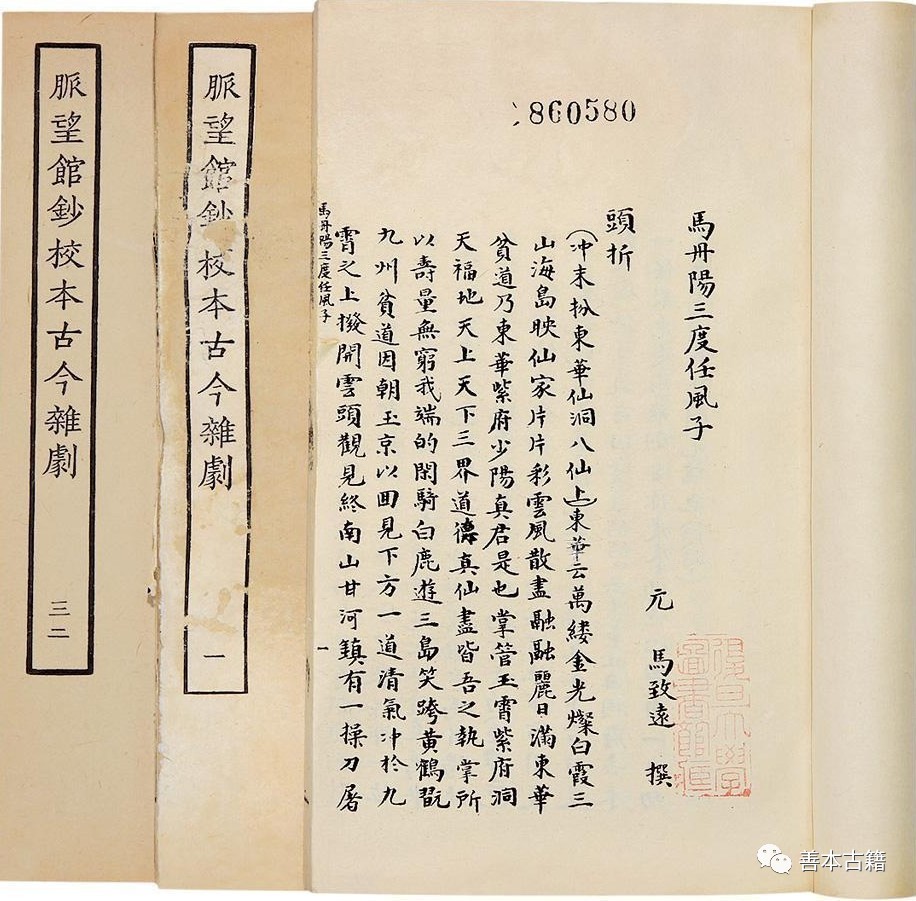 860580
馬丹陽三度任風子
元 馬致遠 撰
復旦大學
圖書館藏
頭折
(冲末扮東華仙洞八仙上)東華云萬縷金光燦白霞三
山海島映仙家片片彩雲風散盡融融麗日滿東華
貧道乃東華紫府少陽真君是也掌管玉霄紫府洞
天福地天上天下三界道德真仙盡皆吾之執掌所
以壽量無窮我端的閑騎白鹿遊三島笑跨黃鶴翫
九州貧道因朝玉京以囬見下方一道清氣冲於九
霄之上撥開雲頭觀見終南山甘河鎮有一操刀屠
馬丹陽三度任風子 一
脈望館鈔校本古今雜劇 一
脈望館鈔校本古今雜劇 三二
善本古籍